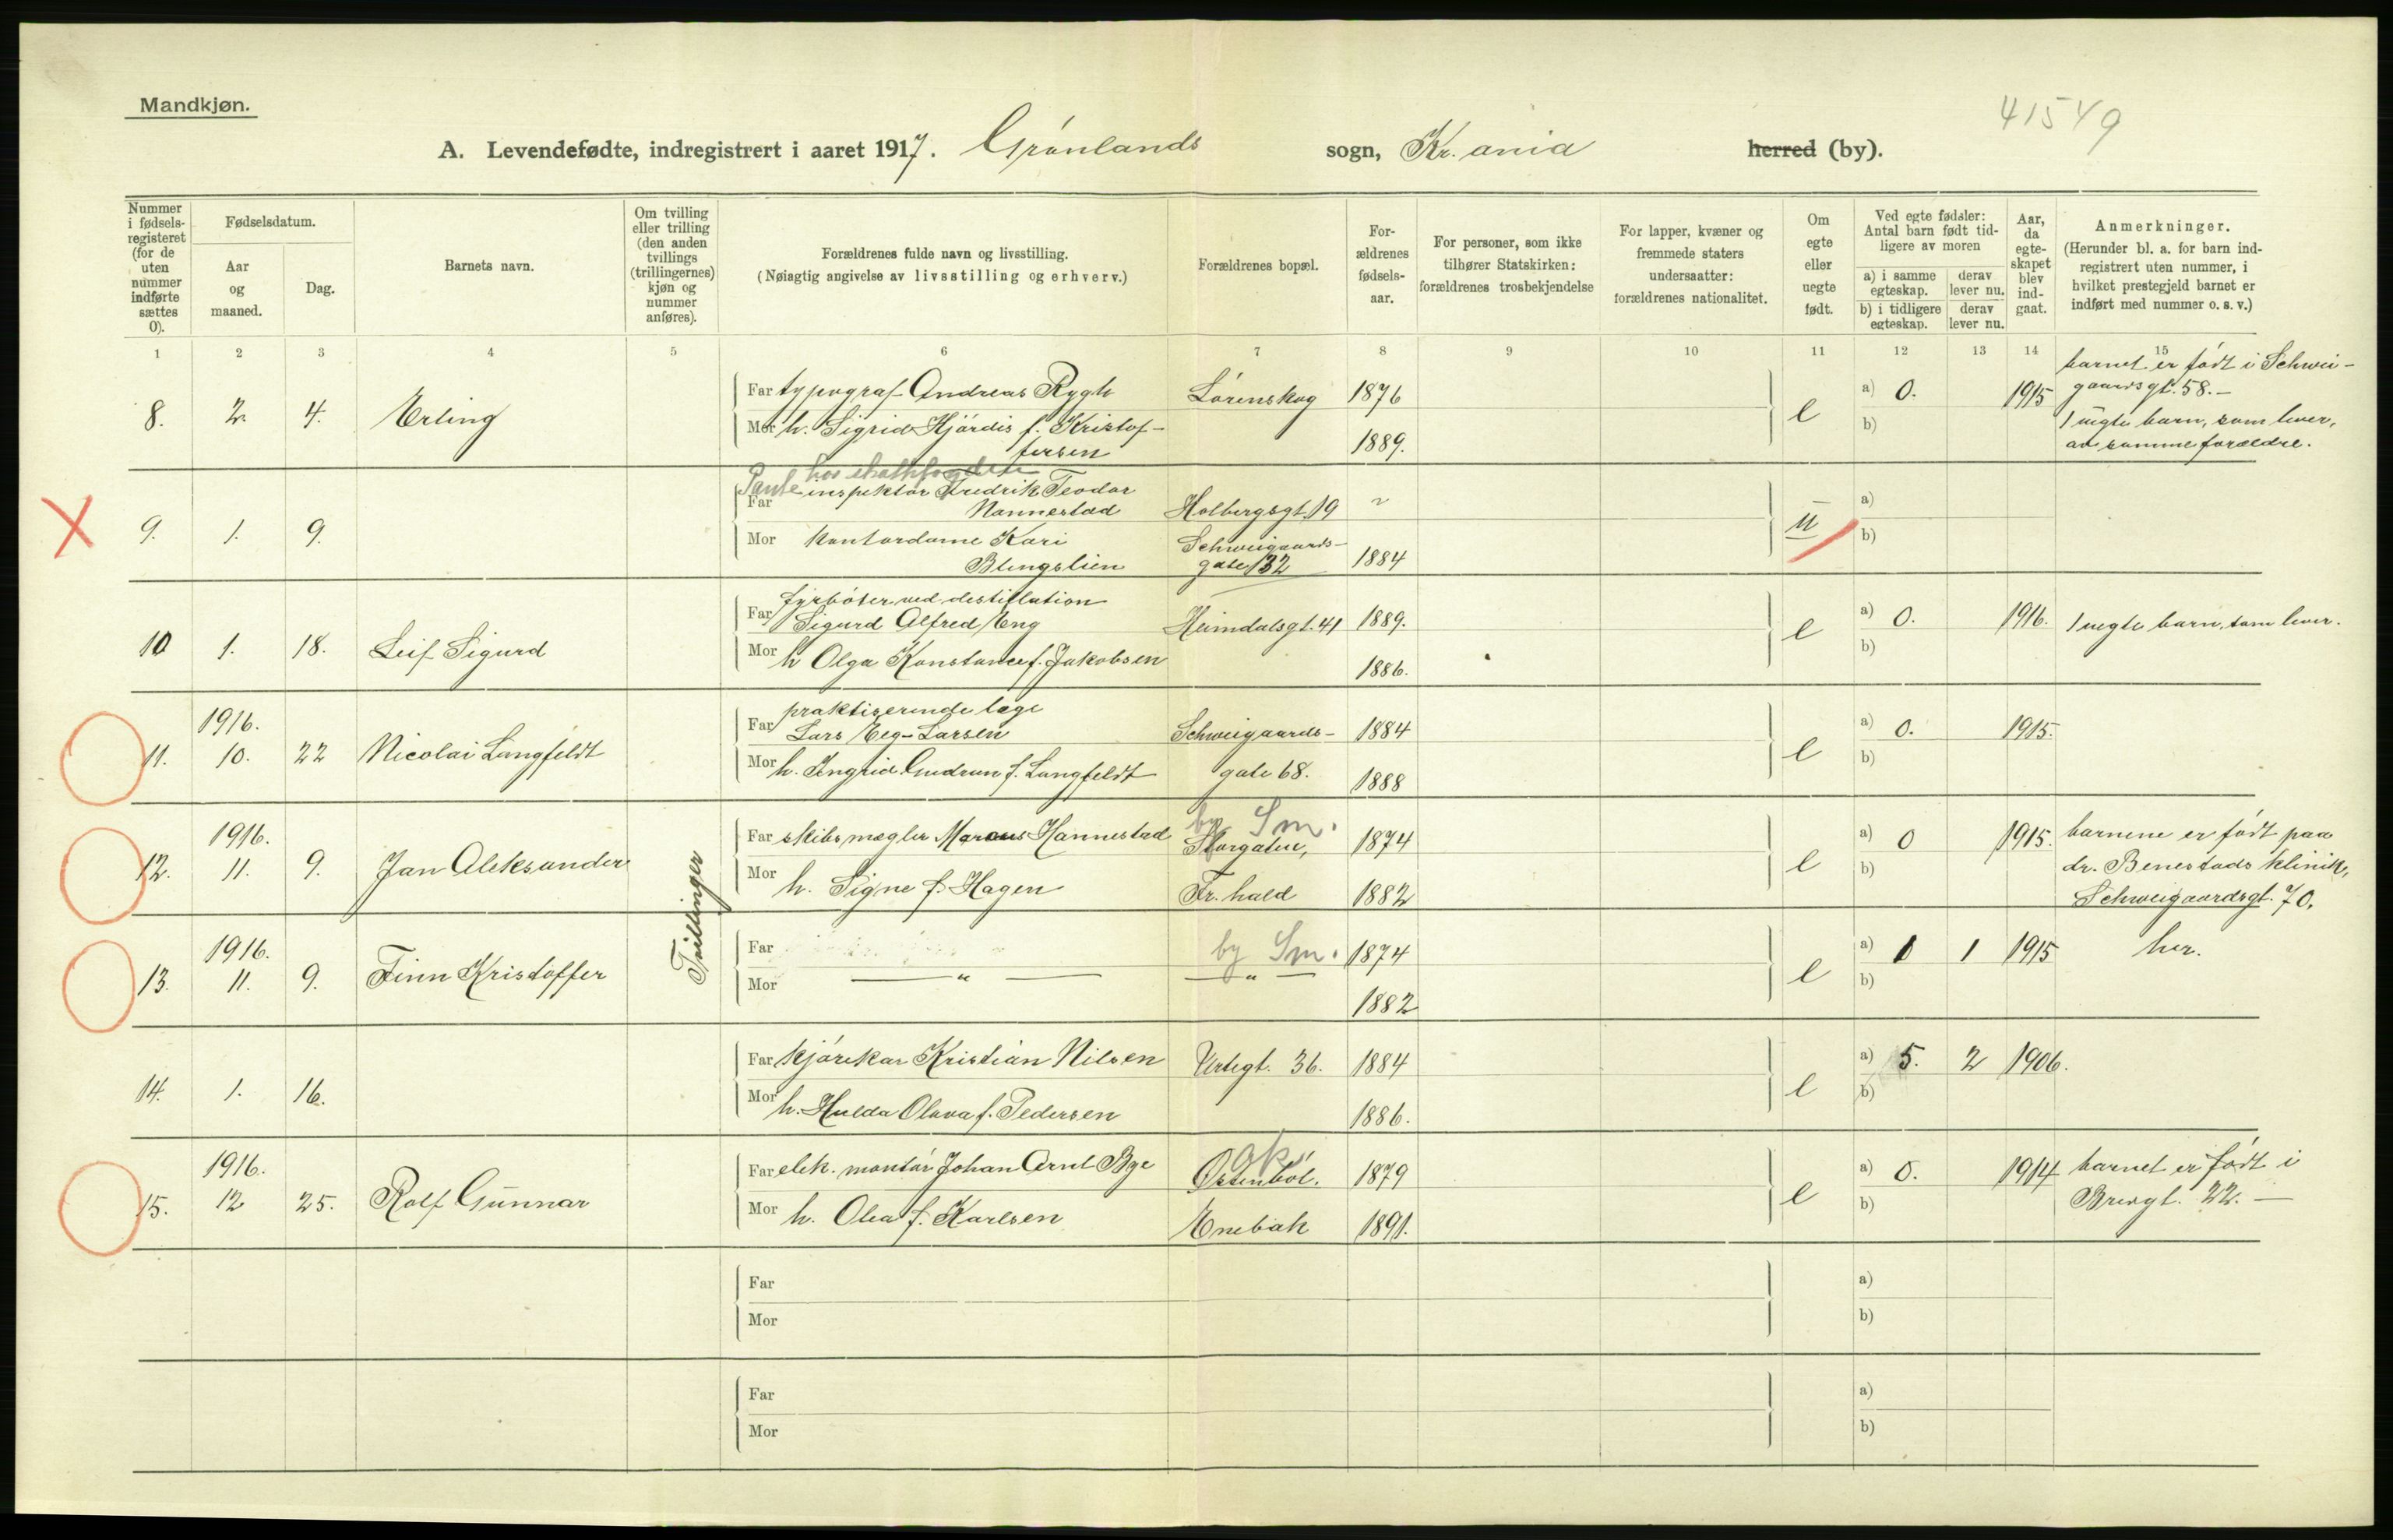 Mandkjøn.
41549
A. Levendefødte, indregistrert i aaret 1917. Grønlands sogn, Kr.ania herred (by).
Nummer i fødselsregisteret (for de uten nummer indførte sættes 0).
Fødselsdatum.
Aar og maaned.
Dag.
Barnets navn.
Om tvilling eller trilling (den anden tvillings (trillingernes) kjøn og nummer anføres).
Forældrenes fulde navn og livsstilling.
(Nøiagtig angivelse av livsstilling og erhverv.)
Forældrenes bopæl.
Forældrenes fødselsaar.
For personer, som ikke tilhører Statskirken: forældrenes trosbekjendelse
For lapper, kvæner og fremmede staters undersaatter: forældrenes nationalitet.
Om egte eller uegte født.
Ved egte fødsler: Antal barn født tidligere av moren
a) i samme egteskap.
derav lever nu.
b) i tidligere egteskap.
derav lever nu.
Aar, da egteskapet blev indgaat.
Anmerkninger.
(Herunder bl. a. for barn indregistrert uten nummer, i hvilket prestegjeld barnet er indført med nummer o. s. v.)
1 2 3 4 5 6 7 8 9 10 11 12 13 14 15
8. 2. 4. Erling
Far typograf Andreas Rygh Lørenskog 1876
Mor h. Sigrid Hjördis f. Kristoffersen 1889.
e a) 0. b) 1915
barnet er födt i Schweigaardsgt. 58. –
1 uegte barn, som lever, av samme forældre.
9. 1. 9.
Pante inspektör hos skattefogden
Far Fredrik Teodor Nannestad Holbergsgt. 19 ~
Mor Kontordame Kari Blengslien Schweigaardsgate 132 1884
u a) b)
10 1. 18. Leif Sigurd
Far fyrböter ved destillation Sigurd Alfred Eng Heimdalsgt. 41 1889.
Mor h Olga Konstance f. Jakobsen 1886.
e a) 0. b) 1916. 1 uegte barn, som lever.
1916.
11. 10. 22 Nicolai Langfeldt
Far praktiserende læge Lars Eeg-Larsen Schweigaards- 1884
Mor h. Ingrid Gudrun f. Langfeldt gate 68. 1888
e a) 0. b) 1915.
1916.
12. 11. 9. Jan Aleksander
Tvillinger
Far skibsmægler Marcus Hannestad by Sm. Storgaten, 1874
Mor h. Signe f. Hagen Fr. hald 1882
e a) 0 b) 1915.
barnene er födt paa dr. Benestads klinik, Schweigaardsgt. 70.
1916.
13. 11. 9. Finn Kristoffer
Far by Sm. 1874
Mor — " — — " — 1882
e a) 1 1 b) 1915 her.
14. 1. 16.
Far kjörekar Kristian Nilsen Urtegt. 36. 1884
Mor h. Hulda Olava f. Pedersen 1886.
e a) 5. 2 b) 1906.
1916.
15. 12 25. Rolf Gunnar
Far elek. montör Johan Arnt Bye Østenböl. ak 1879
Mor h. Olea f. Karlsen Enebak 1891.
e a) 0. b) 1914
barnet er födt i Breigt. 22. —
Far
Mor
a)
b)
Far
Mor
a)
b)